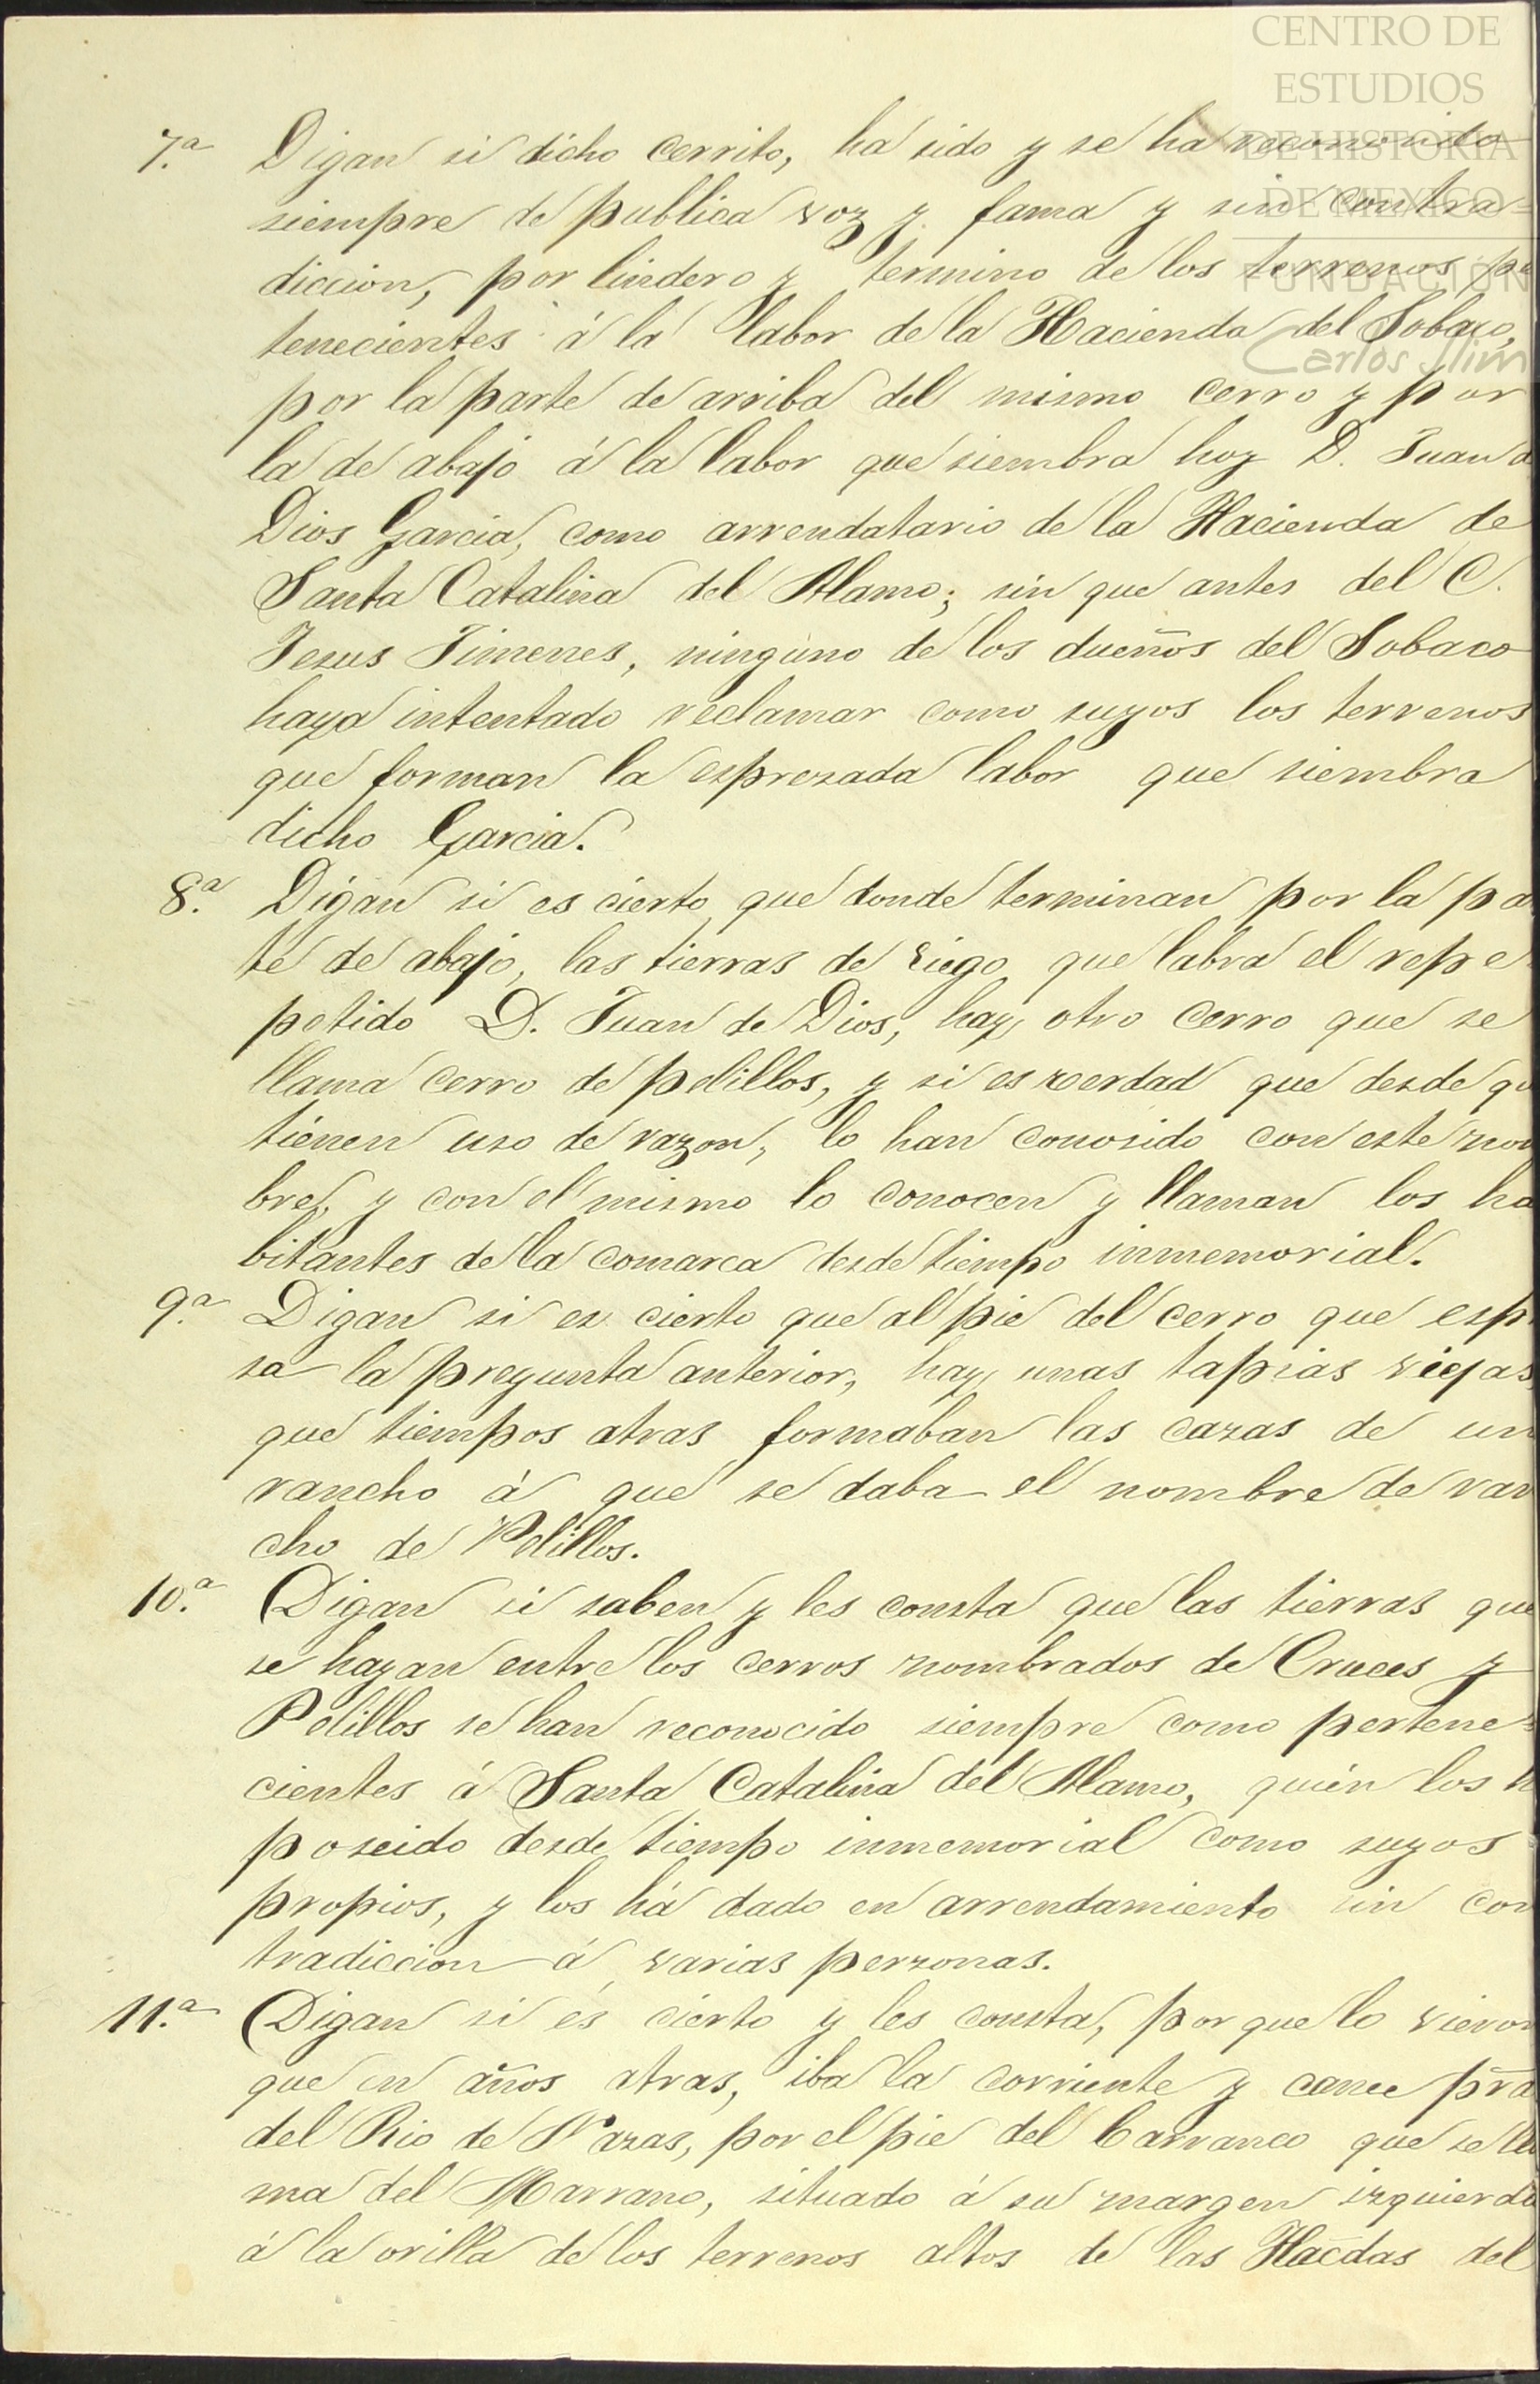 CENTRO DE
ESTUDIOS
DE HISTORIA
DE MEXICO
FUNDACION
Carlos Slim
7.ª Digan si dicho cerrito, ha sido y se ha reconocido
siempre de publica voz y fama y sin contra-
diccion, por lindero y termino de los terrenos pe
tenecientes á la labor de la Hacienda del Sobaco,
por la parte de arriba del mismo cerro y por
la de abajo á la labor que siembra hoy D. Juan d
Dios Garcia, como arrendatario de la Hacienda de
Santa Catalina del Alamo; sin que antes del C.
Jesus Jimenes, ninguno de los dueños del Sobaco
haya intentado reclamar como suyos los terrenos
que forman la espresada labor que siembra
dicho Garcia.
8.ª Digan si es cierto, que donde terminan por la pa
te de abajo, las tierras de riego que labra el repe
petido D. Juan de Dios, hay otro cerro que se
llama cerro de pelillos, y si es verdad que desde qu
tienen uso de razon, lo han conosido con este nom
bre, y con el mismo lo conocen y llaman los ha
bitantes de la comarca desde tiempo inmemorial.
9.ª Digan si es cierto que al pie del cerro que esp
sa la pregunta anterior, hay unas tapias viejas
que tiempos atras formaban las cazas de un
rancho á que se daba el nombre de ran
cho de Pelillos.
10.ª Digan si saben y les consta que las tierras que
se hayan entre los cerros nombrados de Cruces y
Pelillos se han reconocido siempre como pertene-
cientes á Santa Catalina del Alamo, quien los h
poseido desde tiempo inmemorial como suyos
propios, y los há dado en arrendamiento sin con
tradiccion á varias perzonas.
11.ª Digan si és cierto y les consta, por que lo vieron
que en años atras, iba la corriente y cauce pra
del Rio de Nazas, por el pie del barranco que se lla
ma del Marrano, situado á su margen izquierda
á la orilla de los terrenos altos de las Hacdas del